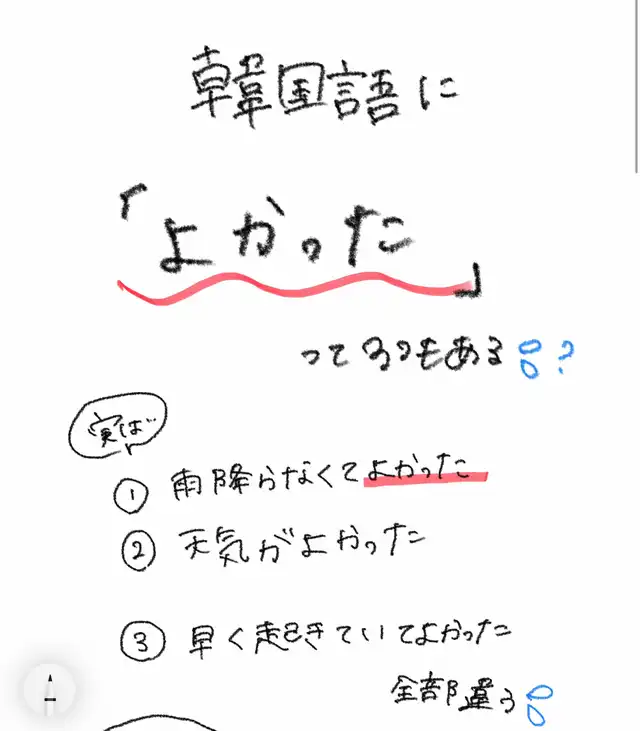 韓国語に
「よかった」
って3つもある?
実は
① 雨降らなくてよかった
② 天気がよかった
③ 早く起きていてよかった
全部違う